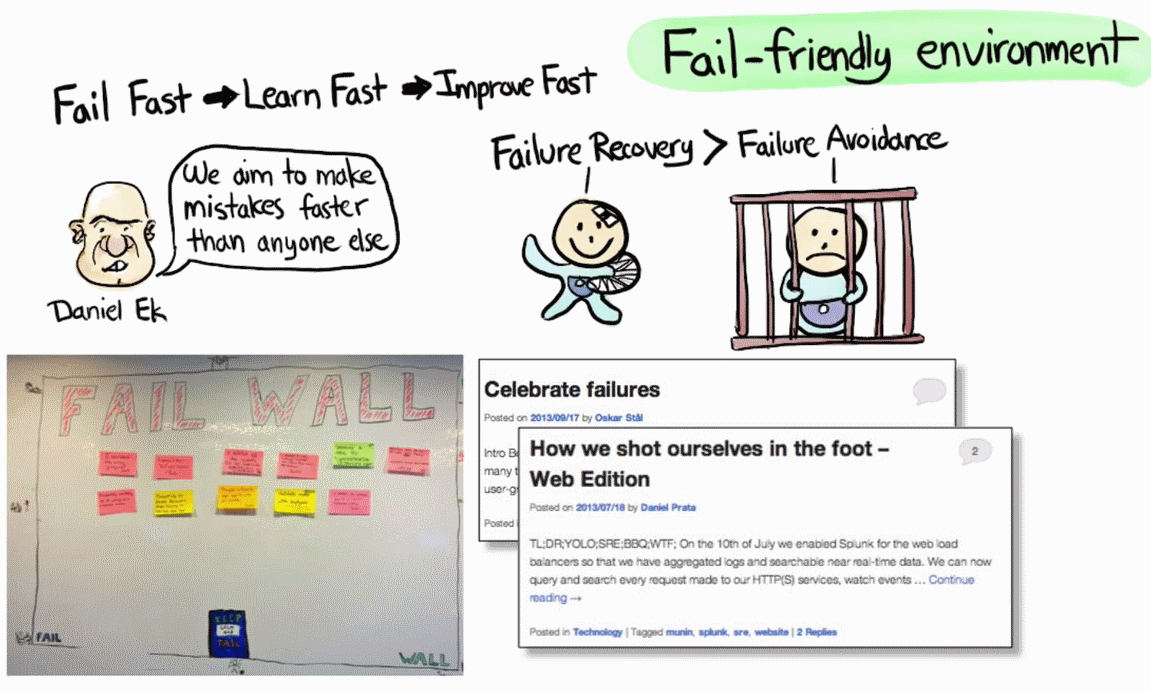 Fail-friendly environment
Fail Fast ➔ Learn Fast ➔ Improve Fast
Failure Recovery > Failure Avoidance
We aim to make
mistakes faster
than anyone else
Daniel Ek
FAIL WALL
KEEP
FAIL
FAIL
WALL
Celebrate failures
Posted on 2013/09/17 by Oskar Stål
Intro
many
user-
Posted
How we shot ourselves in the foot –
Web Edition
2
Posted on 2013/07/18 by Daniel Prata
TL;DR;YOLO;SRE;BBQ;WTF; On the 10th of July we enabled Splunk for the web load
balancers so that we have aggregated logs and searchable near real-time data. We can now
query and search every request made to our HTTP(S) services, watch events … Continue
reading →
Posted in Technology | Tagged munin, splunk, sre, website | 2 Replies